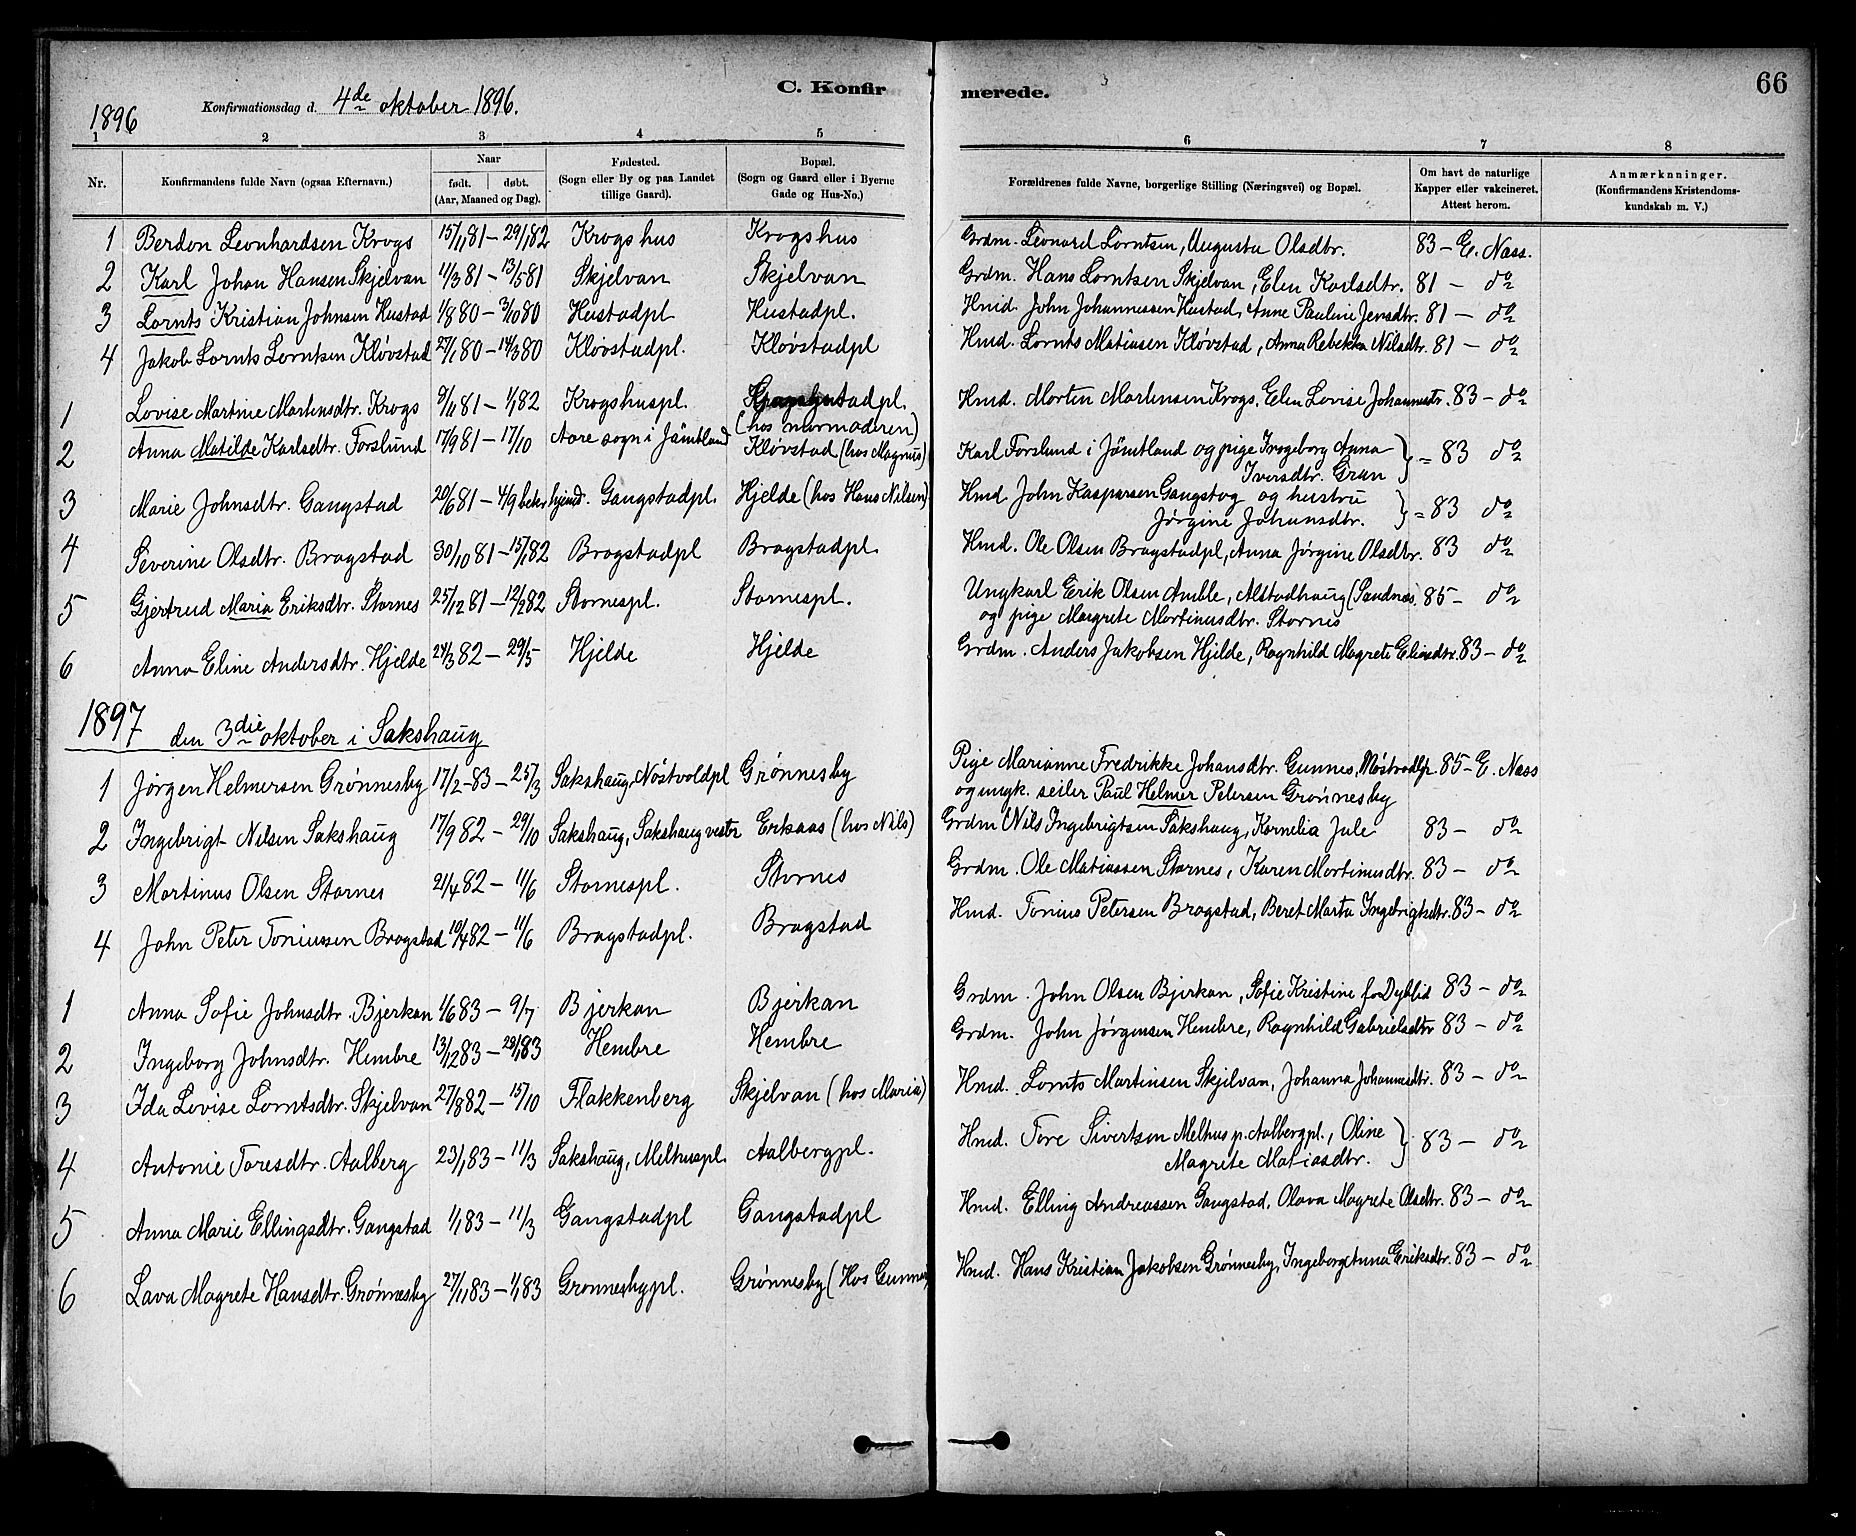 C. Konfirmerede. 66
1896 Konfirmationsdag d. 4de oktober 1896.
1 2 3 4 5 6 7 8
Nr. Konfirmandens fulde Navn (ogsaa Efternavn.) Naar født. døbt. (Aar, Maaned og Dag). Fødested. (Sogn eller By og paa Landet tillige Gaard). Bopæl. (Sogn og Gaard eller i Byerne Gade og Hus-No.) Forældrenes fulde Navne, borgerlige Stilling (Næringsvei) og Bopæl. Om havt de naturlige Kapper eller vakcineret. Attest herom. Anmærkninger. (Konfirmandens Kristendomskundskab m. V.)
1 Berdon Leonhardsen Krogs 15/1 81 – 29/1 82 Krogshus Krogshus Grdm. Leonard Lorntsen, Augusta Olsdtr. 83 – E. Næss.
2 Karl Johan Hansen Skjelvan 11/3 81 – 13/5 81 Skjelvan Skjelvan Grdm. Hans Lorntsen Skjelvan, Elen Karlsdtr. 81 – do
3 Lornts Kristian Johnsen Hustad 1/8 80 – 3/10 80 Hustadpl Hustadpl. Hmd. John Johannessen Hustad, Anne Pauline Jensdtr. 81 – do
4 Jakob Lornts Lorntsen Kløvstad 27/1 80 – 14/3 80 Kløvstadpl. Kløvstadpl Hmd. Lornts Matiasen Kløvstad, Anna Rebekka Nilsdtr. 81 – do
1 Lovise Martine Martensdtr. Krogs 9/11 81 – 1/1 82 Krogshuspl. (hos mormoderen) Hmd. Morten Martensen Krogs, Elen Lovise Johannesdtr. 83 – do
2 Anna Matilde Karlsdtr. Forslund 17/9 81 – 17/10 Aare sogn i Jämtland Kløvstad (hos Magnus) Karl Forslund i Jämtland og pige Ingeborg Anna Iversdtr. Gran } = 83 do
3 Marie Johnsdtr. Gangstad 20/6 81 – 4/9 bekr. hjemd. Gangstadpl. Hjelde (hos Hans Nilsen) Hmd. John Kaspersen Gangstog og hustru Jørgine Johansdtr. } = 83 do
4 Severine Olsdtr. Brogstad 30/10 81 – 15/1 82 Brogstadpl Brogstadpl. Hmd. Ole Olsen Brogstadpl, Anna Jørgine Olsdtr. 83 do
5 Gjertrud Maria Eriksdtr. Stornes 25/12 81 – 12/2 82 Stornespl. Stornespl. Ungkarl Erik Olsen Amble, Alstadhaug (Sandnæs) og pige Margrete Martinusdtr. Stornes 85 – do
6 Anna Eline Andersdtr. Hjelde 24/3 82 – 29/5 Hjelde Hjelde Grdm. Anders Jakobsen Hjelde, Ragnhild Magrete Eliasdtr. 83 – do
1897 den 3die oktober i Sakshaug
1 Jørgen Helmersen Grønnesby 17/2 – 83 – 25/3 Sakshaug, Nøstvoldpl Grønnesby Pige Marianne Fredrikke Johansdtr. Gunnes, Nøstvoldp. og ungk. seiler Paul Helmer Petersen Grønnesby 85 – E. Næss
2 Ingebrigt Nilsen Sakshaug 17/9 82 – 29/10 Sakshaug, Sakshaug vestr Erkaas (hos Nils) Grdm Nils Ingebrigtsen Sakshaug, Kornelia Jule 83 – do
3 Martinus Olsen Stornes 21/4 82 – 11/6 Stornespl. Stornes Grdm. Ole Matiassen Stornes, Karen Martinusdtr. 83 – do
4 John Peter Toniussen Brogstad 10/4 82 – 11/6 Brogstadpl. Brogstad Hmd. Tonius Petersen Brogstad, Beret Marta Ingebrigtsdtr. 83 – do
1 Anna Sofie Johnsdtr. Bjerkan 1/6 83 – 9/7 Bjerkan Bjerkan Grdm. John Olsen Bjerkan, Sofie Kristine f. Dyblid 83 – do
2 Ingeborg Johnsdtr. Hembre 13/12 83 – 28/1 83 Hembre Hembre Grdm. John Jørgensen Hembre, Ragnhild Gabrielsdtr 83 – do
3 Ida Lovise Lorntsdtr. Skjelvan 27/8 82 – 15/10 Flakkenberg Skjelvan (hos Maria) Hmd. Lornts Martinsen Skjelvan, Johanna Johannesdtr. 83 – do
4 Antonie Toresdtr. Aalberg 23/1 83 – 11/3 Sakshaug, Melhuspl. Aalbergpl. Hmd. Tore Sivertsen Melhus p. Aalbergpl., Oline Magrete Matiasdtr. } 83 – do
5 Anna Marie Ellingsdtr. Gangstad 1/1 83 – 11/3 Gangstadpl Gangstadpl Hmd. Elling Andreassen Gangstad, Olava Magrete Olsdtr. 83 – do
6 Lava Magrete Hansdtr. Grønnesby 27/11 83 – 1/1 83 Grønnesbypl. Grønnesby (Hos Gunnar) Hmd. Hans Kristian Jakobsen Grønnesby, Ingeborg Anna Eriksdtr. 83 – do